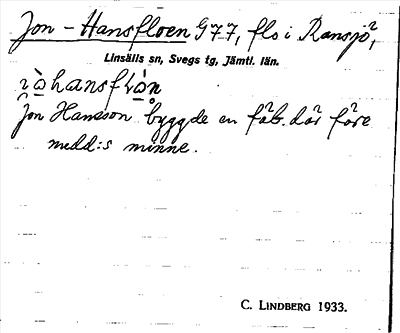 Jon-Hansfloen G77, flo i Ransjö,
Linsälls sn, Svegs tg, Jämtl. län.
Jon Hansson byggde en fäb. där före
medd:s minne.
C. LINDBERG 1933.